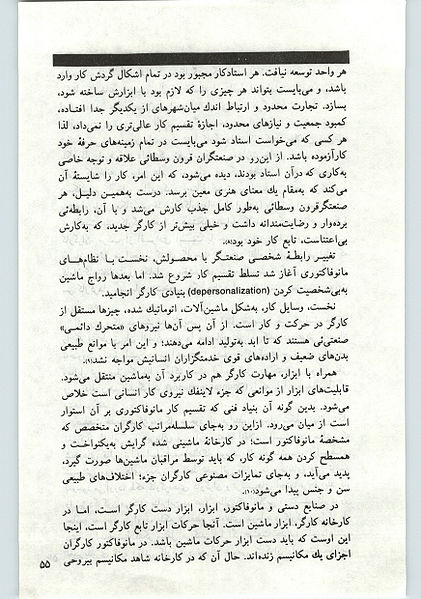 هر واحد توسعه نیافت. هر استادکار مجبور بود در تمام اشکال گردش کار وارد
باشد، و می‌بایست بتواند هر چیزی را که لازم بود با ابزارش ساخته شود،
بسازد. تجارت محدود و ارتباط اندك میان‌شهرهای از یکدیگر جدا افتاده،
کمبود جمعیت و نیازهای محدود، اجازهٔ تقسیم کار عالی‌تری را نمی‌داد، لذا
هر کسی که می‌خواست استاد شود می‌بایست در تمام زمینه‌های حرفهٔ خود
کارآزموده باشد. از این‌رو در صنعتگران قرون وسطائی علاقه و توجه خاصی
به‌کاری که درآن استاد بودند، دیده می‌شود، که این امر، کار را شایستهٔ آن
می‌کند که به‌مقام یك معنای هنری معین برسد. درست به‌همین دلیل، هر
صنعتگرقرون وسطائی به‌طور کامل جذب کارش می‌شد و با آن، رابطه‌ئی
برده‌وار و رضایت‌مندانه داشت و خیلی بیش‌تر از کارگر جدید، که به‌کارش
بی‌اعتناست، تابع کار خود بود(۸).
تغییر رابطهٔ شخصی صنعتگر با محصولش، نخست با نظام‌های
مانوفاکتوری آغاز شد تسلط تقسیم کار شروع شد. اما بعدها رواج ماشین
به‌بی‌شخصیت کردن (depersonalization) بنیادی کارگر انجامید.
نخست، وسایل کار، به‌شکل ماشین‌آلات، اتوماتیك شده، چیزها مستقل از
کارگر در حرکت و کار است. از آن پس آن‌ها نیروهای «متحرك دائمی»
صنعتی‌ئی هستند که تا ابد به‌تولید ادامه می‌دهند؛ و این امر با موانع طبیعی
بدن‌های ضعیف و اراده‌های قوی خدمتگزاران انسانیش مواجه نشد(۹).
همراه با ابزار، مهارت کارگر هم در کاربرد آن به‌ماشین منتقل می‌شود.
قابلیت‌های ابزار از موانعی که جزء لاینفك نیروی کار انسانی است خلاص
می‌شود. بدین گونه آن بنیاد فنی که تقسیم کار مانوفاکتوری بر آن استوار
است از میان می‌رود. ازاین رو به‌جای سلسله‌مراتب کارگران متخصص که
مشخصهٔ مانوفاکتور است؛ در کارخانهٔ ماشینی شده گرایش به‌یکنواخت و
همسطح کردن همه گونه کار، که باید توسط مراقبان ماشین‌ها صورت گیرد،
پدید می‌آید، و به‌جای تمایزات مصنوعی کارگران جزء؛ اختلاف‌های طبیعی
سن و جنس پیدا می‌شود(۱۰).
در صنایع دستی و مانوفاکتور، ابزار، ابزار دست کارگر است، اما در
کارخانه کارگر، ابزار ماشین است. آنجا حرکات ابزار تابع کارگر است، اینجا
این اوست که باید دست ابزار حرکات ماشین باشد. در مانوفاکتور کارگران
اجزای یك مکانیسم زنده‌اند. حال آن که در کارخانه شاهد مکانیسم بیروحی
۵۵